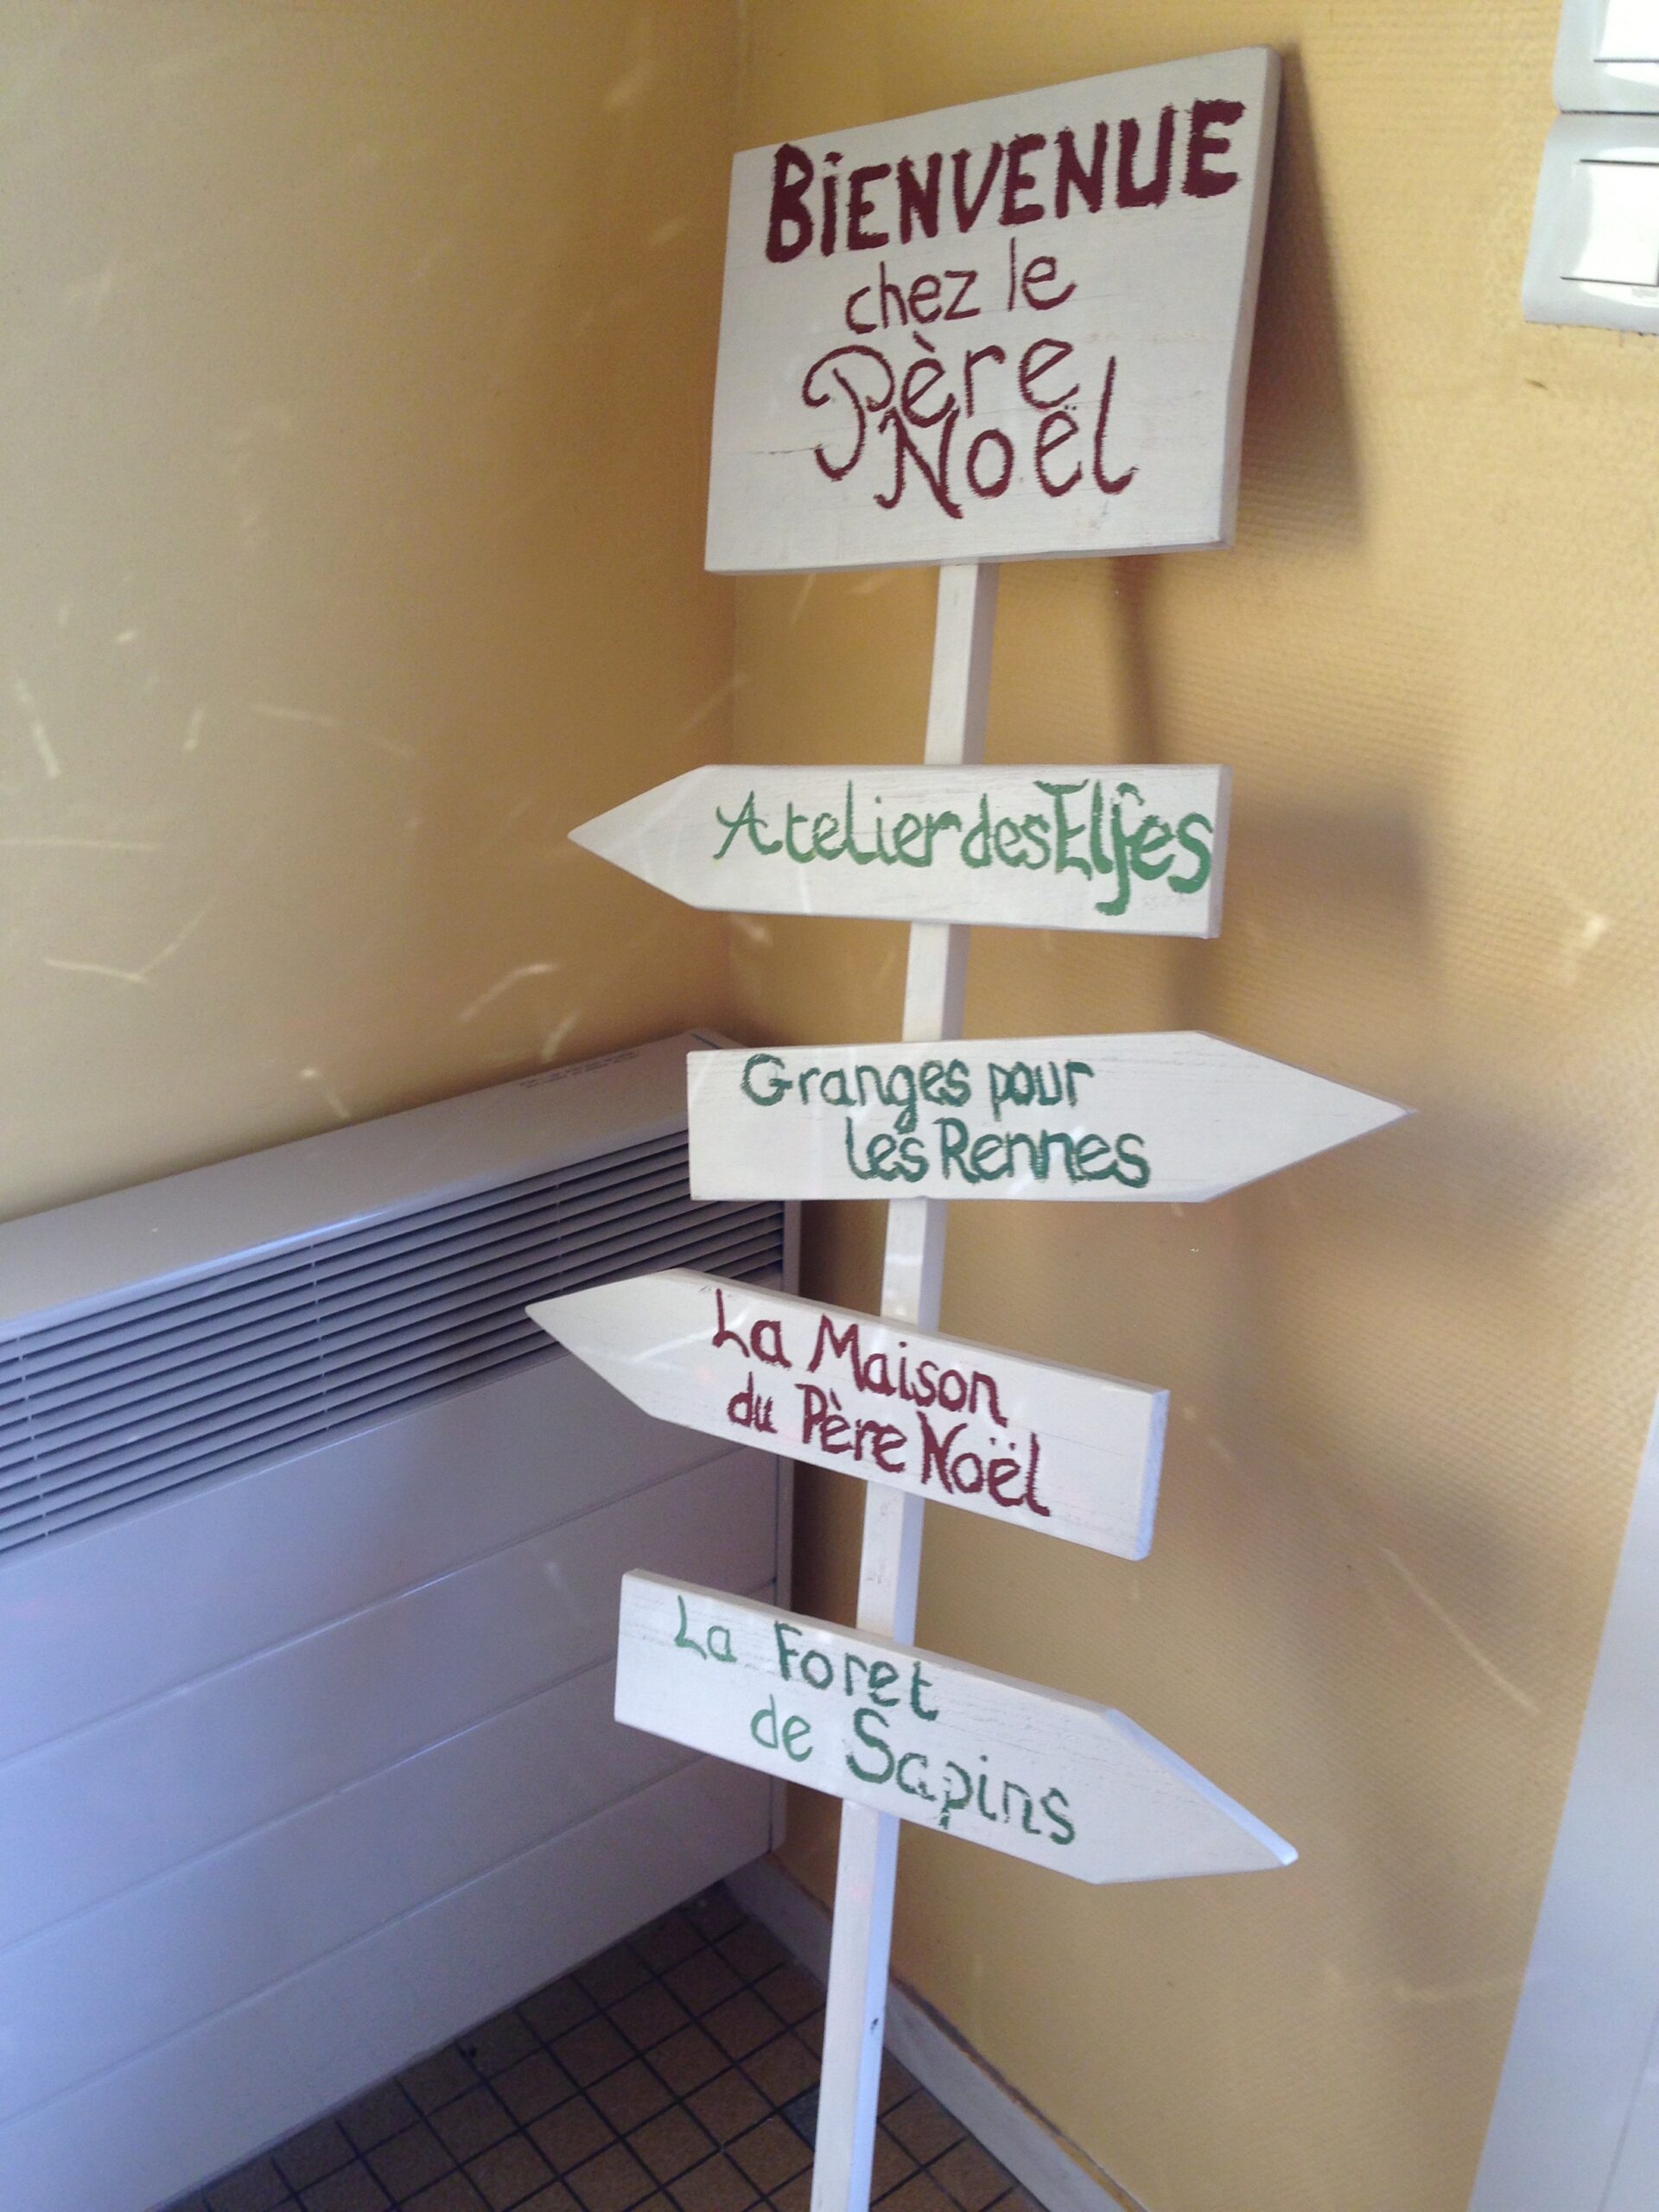 BiENVENUE
chez le
Père
Noël
Atelier des Elfes
Granges pour
les Rennes
La Maison
du Père Noël
La Foret
de Sapins